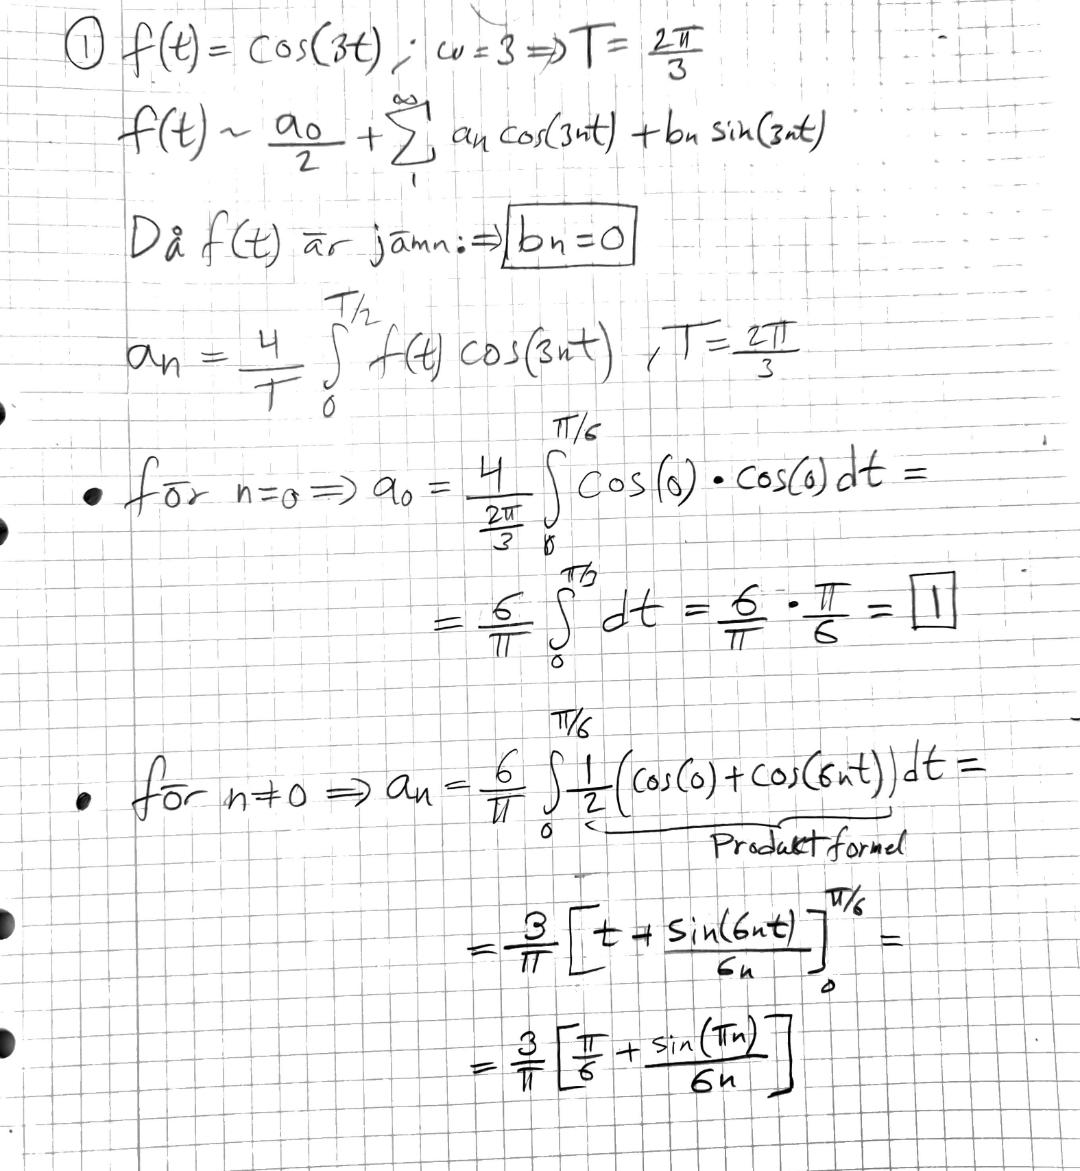 ① f(t) = cos(3t) ; ω = 3 ⇒ T = 2π/3
f(t) ~ a₀/2 + ∑₁^∞ aₙ cos(3nt) + bₙ sin(3nt)
Då f(t) är jämn: ⇒ bₙ = 0
aₙ = 4/T ∫₀^{T/2} f(t) cos(3nt) , T = 2π/3
• för n=0 ⇒ a₀ = 4/(2π/3) ∫₀^{π/6} cos(0) · cos(0) dt =
= 6/π ∫₀^{π/3} dt = 6/π · π/6 = 1
• för n≠0 ⇒ aₙ = 6/π ∫₀^{π/6} 1/2 (cos(0) + cos(6nt)) dt =
Produktformel
= 3/π [t + sin(6nt)/6n]₀^{π/6} =
= 3/π [π/6 + sin(πn)/6n]